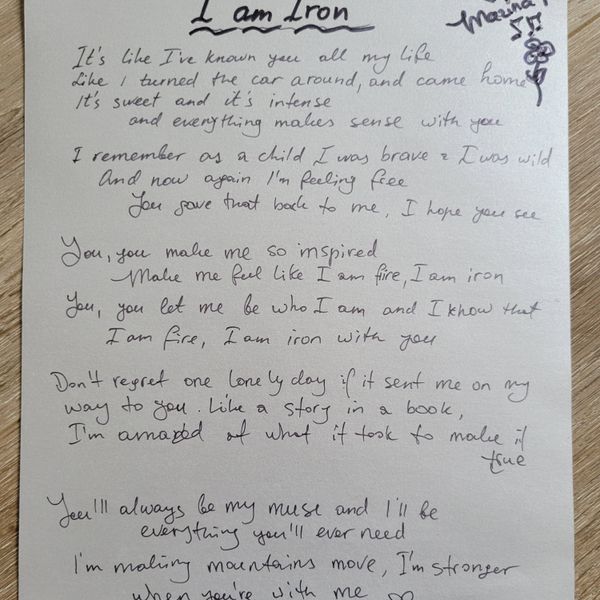 I am Iron
It's like I've known you all my life
Like I turned the car around, and came home
It's sweet and it's intense
and everything makes sense with you
I remember as a child I was brave & I was wild
And now again I'm feeling free
You gave that back to me, I hope you see
You, you make me so inspired
Make me feel like I am fire, I am iron
You, you let me be who I am and I know that
I am fire, I am iron with you
Don't regret one lonely day if it sent me on my
way to you. Like a story in a book,
I'm amazed at what it took to make it
true
You'll always be my muse and I'll be
everything you'll ever need
I'm making mountains move, I'm stronger
when you're with me